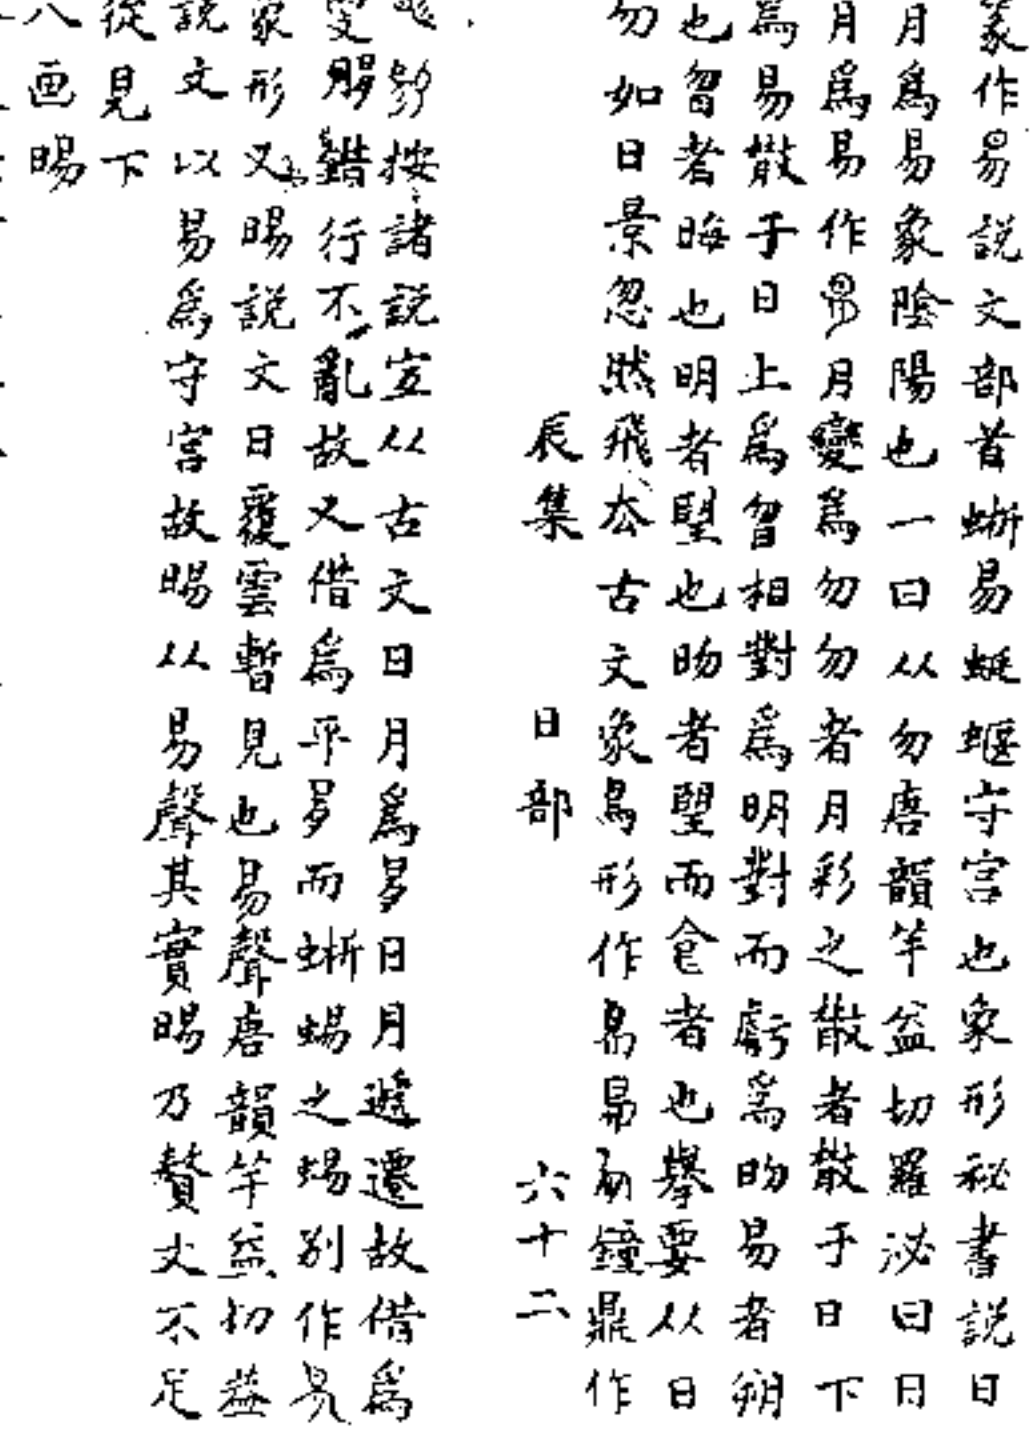 篆作易説文部首蜥易蝘蜓守宫也象形祕書説日
月爲易象陰陽也一曰从勿唐韻羊益切羅泌曰日
月爲易作月變爲勿勿者月彩之散者散于日下
爲易散于日上爲曶相對爲明對而虧爲昒易者朔
也曶者晦也明者朢也昒者朢而食者也舉要从日
勿如日景忽然飛厺古文象鳥形作鐘鼎作
辰集 日部 六十二
按諸説宜从古文日月爲日月遞遷故借爲
錯行不亂故又借爲平而蜥蜴之蜴別作易
象形又晹説文日覆雲暫見也易聲唐韻羊益切益
説文以易爲守宫故晹从易聲其實晹乃贅文不足
從見下
八画晹